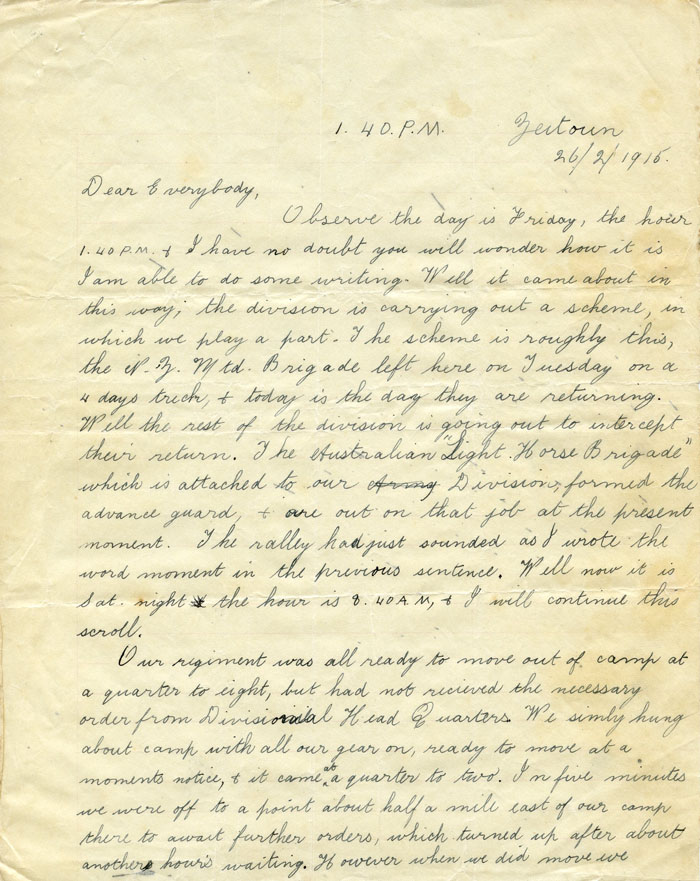 1.40.P.M. Zeitoun
26/2/1915.
Dear Everybody,
Observe the day is Friday, the hour
1.40 P.M. & I have no doubt you will wonder how it is
I am able to do some writing. Well it came about in
this way; the division is carrying out a scheme, in
which we play a part. The scheme is roughly this,
the N.Z. Mtd. Brigade left here on Tuesday on a
4 days treck, & today is the day they are returning.
Well the rest of the division is going out to intercept
their return. The Australian "Light Horse Brigade"
which is attached to our Army Division, formed the
advance guard, & are out on that job at the present
moment. The ralley had just sounded as I wrote the
word moment in the previous sentence. Well now it is
Sat. night the hour is 8.40 A.M, & I will continue this
scroll.
Our regiment was all ready to move out of camp at
a quarter to eight, but had not recieved the necessary
order from Divisional Head Quarters. We simly hung
about camp with all our gear on, ready to move at a
moments notice, & it came at a quarter to two. In five minutes
we were off to a point about half a mile east of our camp
there to await further orders, which turned up after about
anothers hour's waiting. However when we did move we